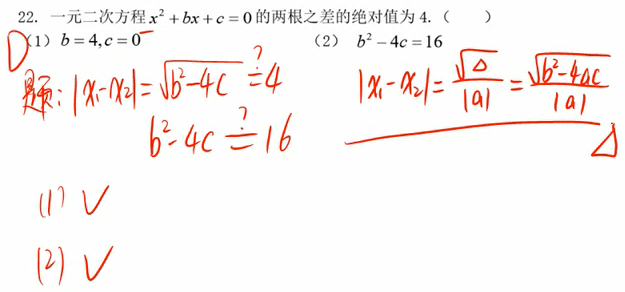 22. 一元二次方程 x² + bx + c = 0 的两根之差的绝对值为 4.（ ）
D (1) b = 4, c = 0 (2) b² − 4c = 16
题: |x₁-x₂| = √(b²-4c) ≟ 4 |x₁-x₂| = √Δ/|a| = √(b²-4ac)/|a|
b²-4c ≟ 16 △
(1) √
(2) √